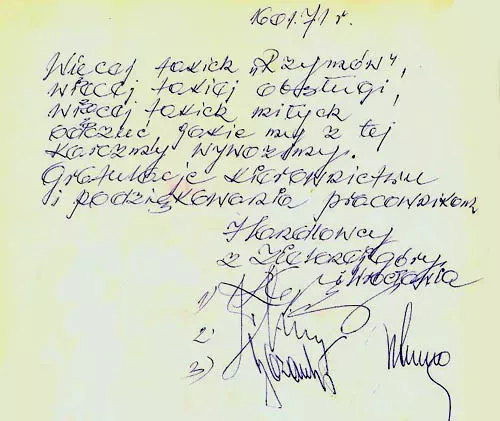 16.01.71 r.
Więcej takich „Rzymów",
więcej takiej obsługi,
więcej takich miłych
odczuć, jakie my z tej
karczmy wywozimy.
Gratulacje kierownictwu
i podziękowania pracownikom
Handlowcy
z Jeleniej Góry
i Wrocławia
1)
2)
3)